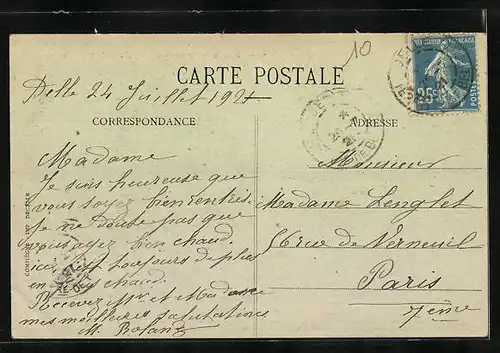 10
CARTE POSTALE
Delle 24 Juillet 1921
CORRESPONDANCE
ADRESSE
25c
POSTES
Madame
Je suis heureuse que
vous soyez bien rentrés
je ne doute pas que
vous ayez bien chaud
ici, fait toujours de plus
en chaud.
Recevez Mr et Madame
mes meilleures salutations
M.
Monsieur
Madame Lenglet
rue de Verneuil
Paris
7ème